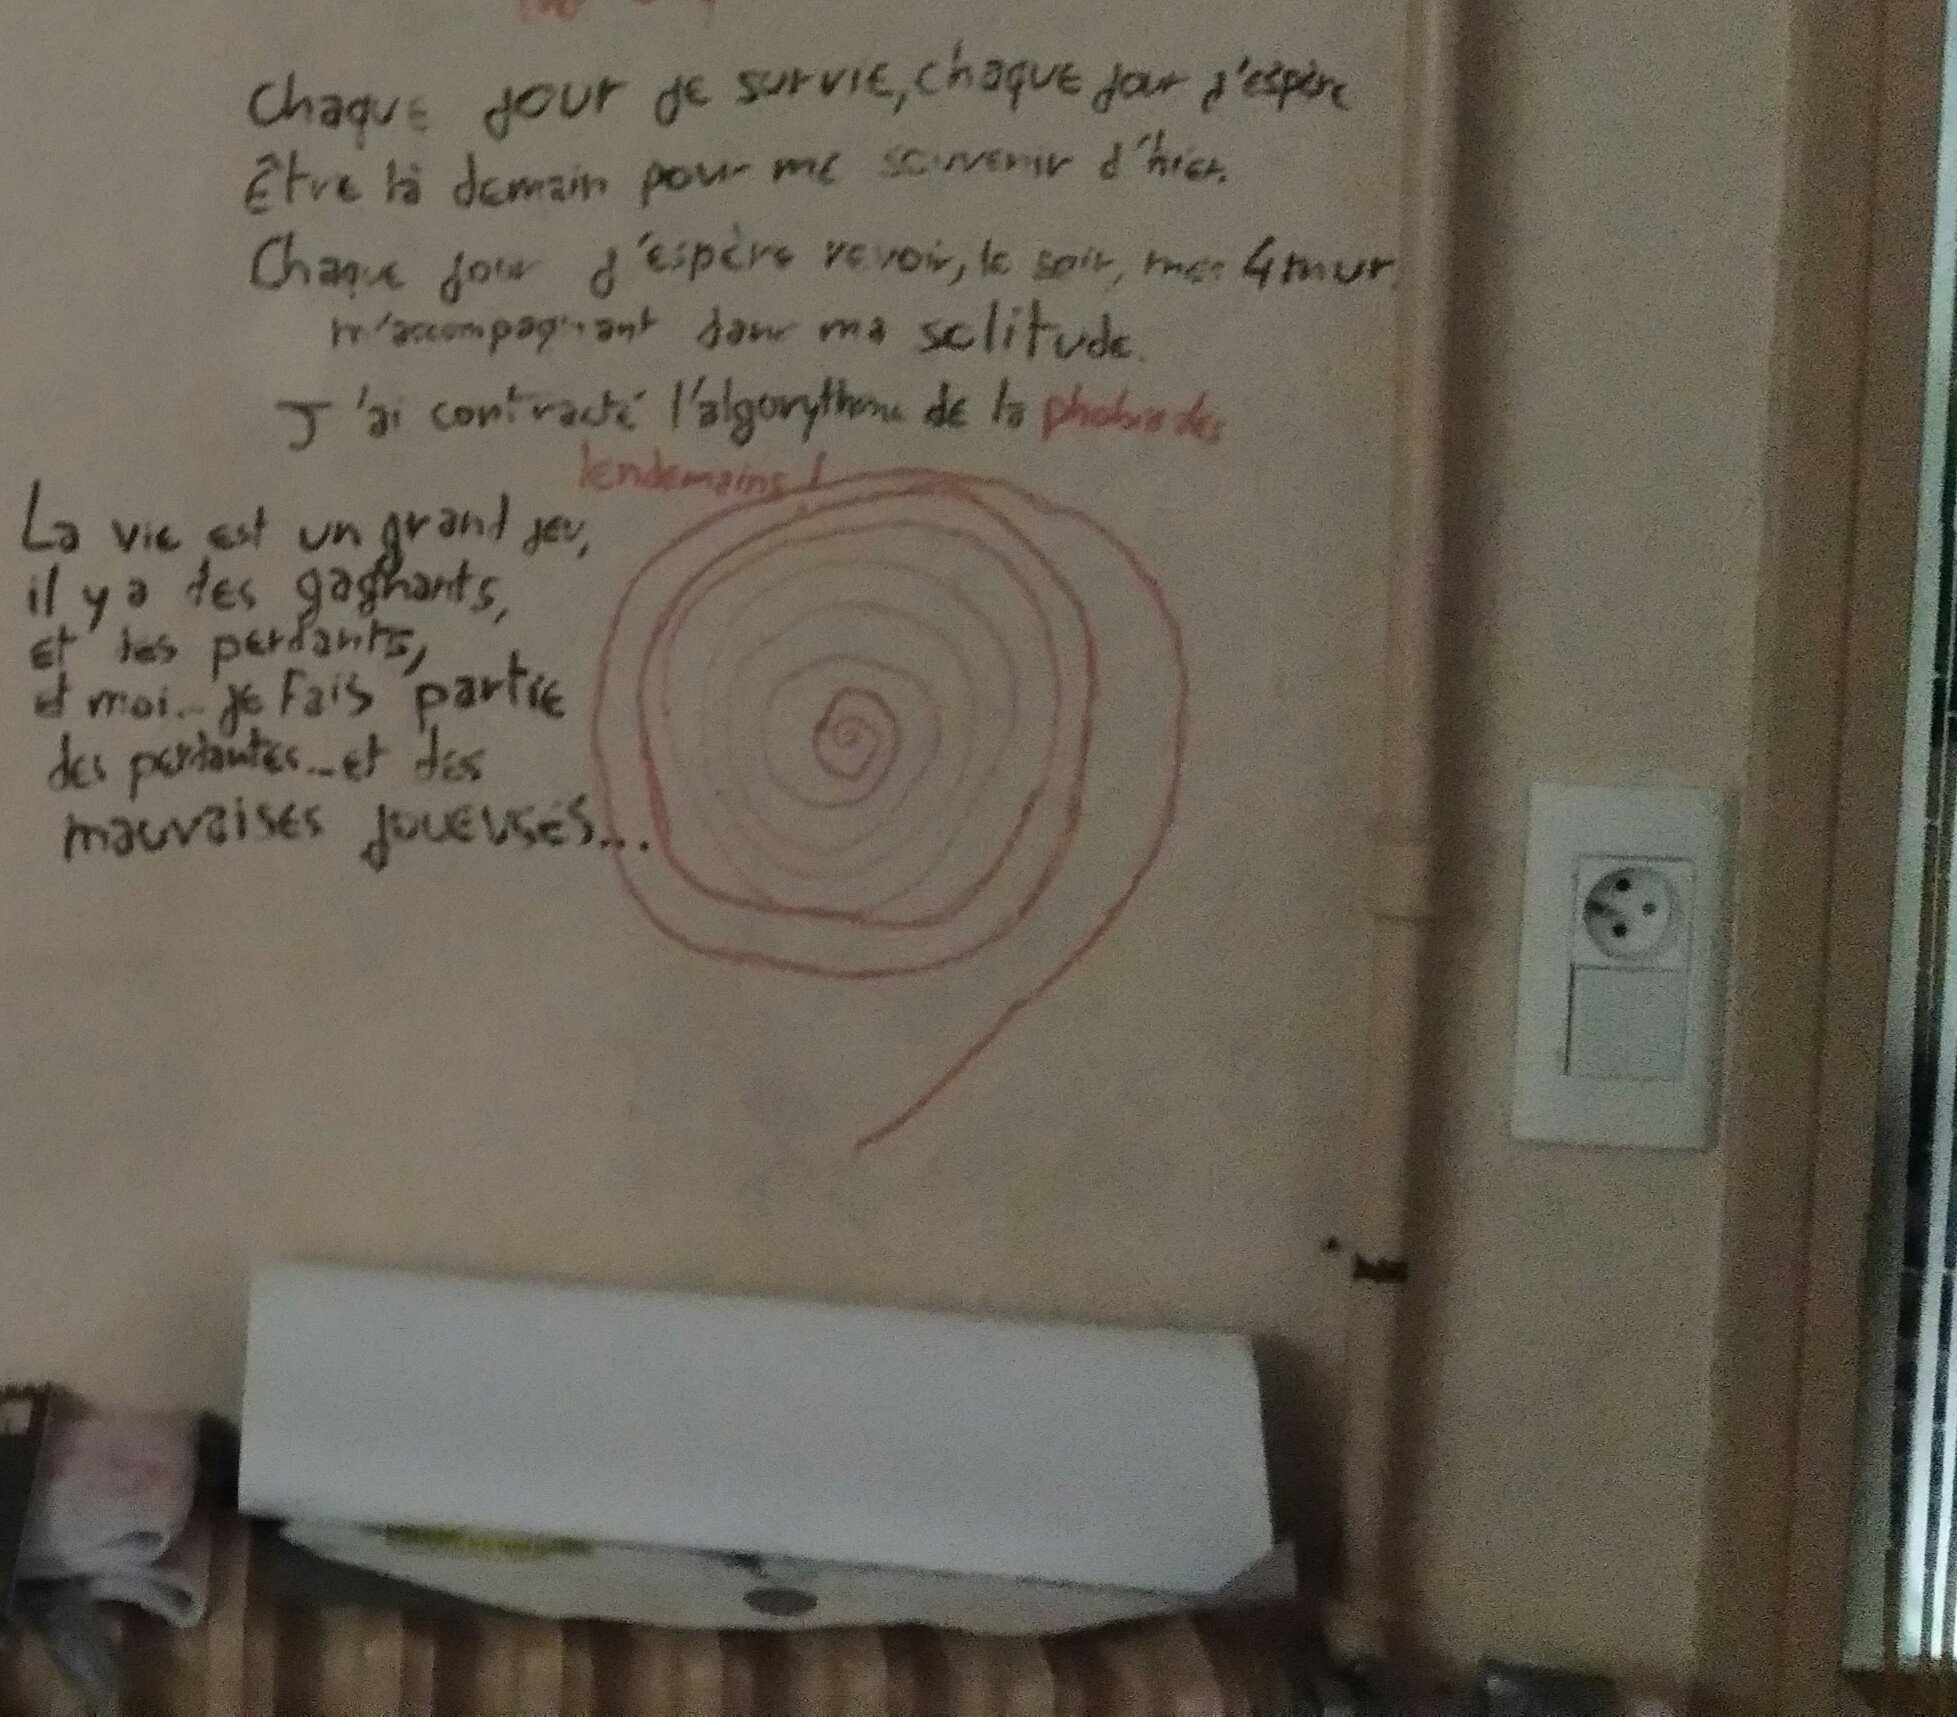 Chaque jour je survie, chaque jour j'espère
Être là demain pour me souvenir d'hier.
Chaque jour j'espère revoir, le soir, mes 4 mur
m'accompagnant dans ma solitude.
J'ai contracté l'algorythme de la phobie des
lendemains !
La vie est un grand jeu,
il y a des gagnants,
et des perdants,
et moi... je fais partie
des perdantes... et des
mauvaises joueuses...